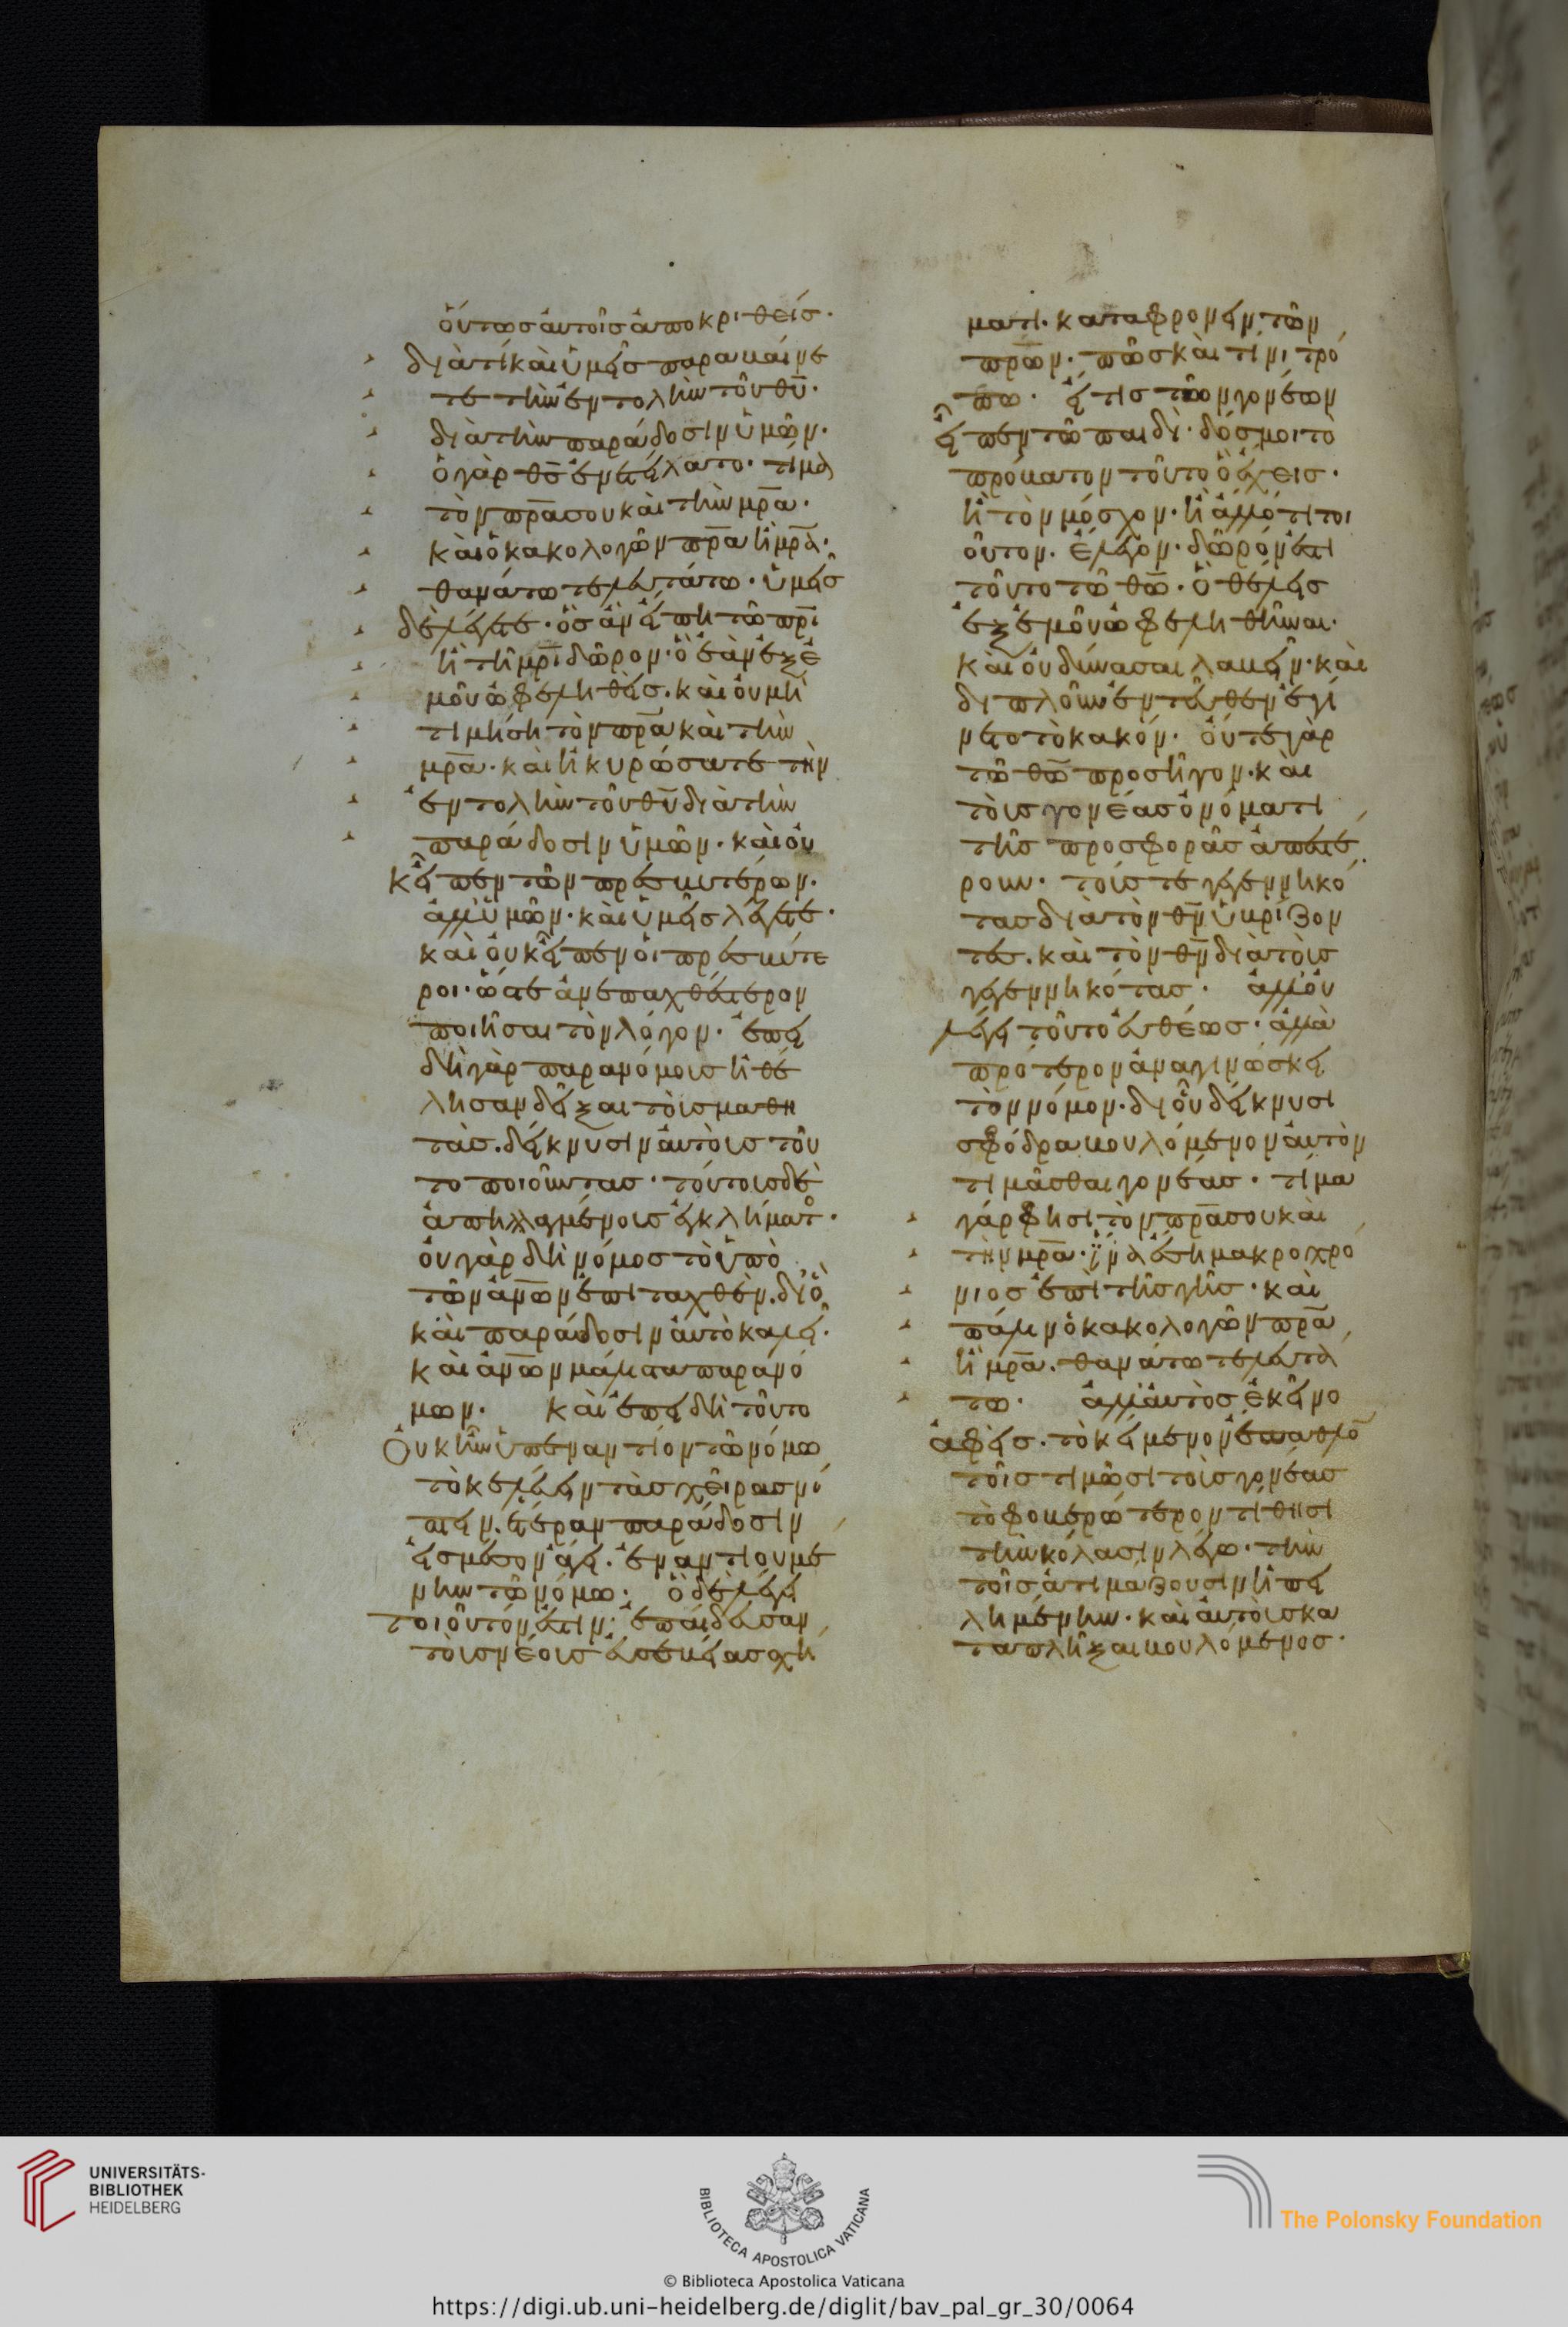 ὅυτωσ ἀυτοῖσ ἀποκριθείσ·
διὰ τί καὶ ὑμεῖσ παραβαίνε
τε τὴν ἐντολὴν τοῦ θυ̅·
διὰ τὴν παράδοσιν ὑμῶν·
ὁ γὰρ θσ̅ ἐνετείλατο· τίμα
τὸν πρ̅α σου καὶ τὴν μρ̅α·
καὶ ὁ κακολογῶν πρ̅α ἢ μρ̅α·
θανάτω τελευτάτω· ὑμεῖσ
δὲ λέγετε· ὃσ ἂν εἴπη τῶ πρ̅ι
ἢ τῆ μρ̅ι δῶρον· ὃ ἐὰν ἐξ ἐ
μοῦ ὠφεληθῆσ· καὶ οὐ μὴ
τιμήση τὸν πρ̅α καὶ τὴν
μρ̅α· καὶ ἠκυρώσατε τὴν
ἐντολὴν τοῦ θυ̅ διὰ τὴν
παράδοσιν ὑμῶν· καὶ οὐ
κ εἶπεν τῶν πρεσβυτέρων·
ἀλλ ὑμῶν· καὶ ὑμεῖσ λέγετε·
καὶ οὐκ εἶπεν ὁι πρεσβύτε
ροι· ὥστε ἀνεπαχθέστερον
ποιῆσαι τὸν λόγον· ἐπεὶ
δὴ γὰρ παρανόμουσ ἠθέ
λησαν δεῖξαι τοὺσ μαθη
τάσ· δείκνυσιν ἀυτοὺσ τοῦ
το ποιοῦντασ· τούτουσ δὲ
ἀπηλλαγμένουσ ἐγκλήματοσ·
οὐ γὰρ δὴ νόμοσ τὸ ὑπὸ
τῶν ἀνω̅ν ἐπιταχθέν· διὸ
καὶ παράδοσιν ἀυτὸ καλεῖ·
καὶ ἀνω̅ν μάλιστα παρανό
μων· καὶ ἐπειδὴ τοῦτο
Οὐκ ἦν ὑπεναντίον τῶ νόμω
τὸ κελεύειν τὰσ χεῖρασ νί
πτειν· ἑτέραν παράδοσιν
εἰσ μέσον ἄγει· ἐναντιουμέ
νην τῶ νόμω· ὃ δὲ λέγει
τοιοῦτόν ἐστιν· ἐπαίδευσαν
τοὺσ νέουσ εὐσεβείασ σχή
ματι· καταφρονεῖν τῶν
πρω̅ν· πῶσ καὶ τίνι τρό
πω· εἴ τισ τῶν γονέων
εἶπεν τῶ παιδὶ· δόσ μοι τὸ
πρόβατον τοῦτο ὃ ἔχεισ·
ἢ τὸν μόσχον· ἢ ἄλλό τι τοι
οῦτον· ἔλεγον· δῶρόν ἐστι
τοῦτο τῶ θω̅· ὃ θέλεισ
ἐξ ἐμοῦ ὠφεληθῆναι·
καὶ οὐ δύνασαι λαβεῖν· καὶ
διπλοῦν ἐντεῦθεν ἐγί
νετο τὸ κακόν· ὄυτε γὰρ
τῶ θω̅ προσῆγον· καὶ
τοὺσ γονέασ ὀνόματι
τῆσ προσφορᾶσ ἀπεστέ
ρουν· τούσ τε γεγεννηκό
τασ διὰ τὸν θν̅ ὑβρίζον
τεσ· καὶ τὸν θν̅ διὰ τοὺσ
γεγεννηκότασ· ἀλλ οὐ
λέγει τοῦτο εὐθέωσ· ἀλλὰ
πρότερον ἀναγινώσκει
τὸν νόμον· δι οὗ δείκνυσι
σφόδρα βουλόμενον ἀυτὸν
τιμᾶσθαι γονέασ· τίμα
γάρ φησι τὸν πρ̅α σου καὶ
τὴν μρ̅α· ἵνα ἔση μακροχρό
νιοσ ἐπὶ τῆσ γῆσ· καὶ
πάλιν ὁ κακολογῶν πρ̅α
ἢ μρ̅α· θανάτω τελευτά
τω· ἀλλ ἀυτὸσ ἐκεῖνο
ἀφεὶσ· τὸ κείμενον ἔπαθλο̅
τοῖσ τιμῶσι τοὺσ γονέασ
τὸ φοβερώτερον τίθησι
τὴν κόλασιν λέγω· τὴν
τοῖσ ἀτιμάζουσιν ἠπει
λημένην· καὶ ἀυτοὺσ κα
ταπλῆξαι βουλόμενοσ·
UNIVERSITÄTS-
BIBLIOTHEK
HEIDELBERG
BIBLIOTECA APOSTOLICA VATICANA
The Polonsky Foundation
© Biblioteca Apostolica Vaticana
https://digi.ub.uni-heidelberg.de/diglit/bav_pal_gr_30/0064